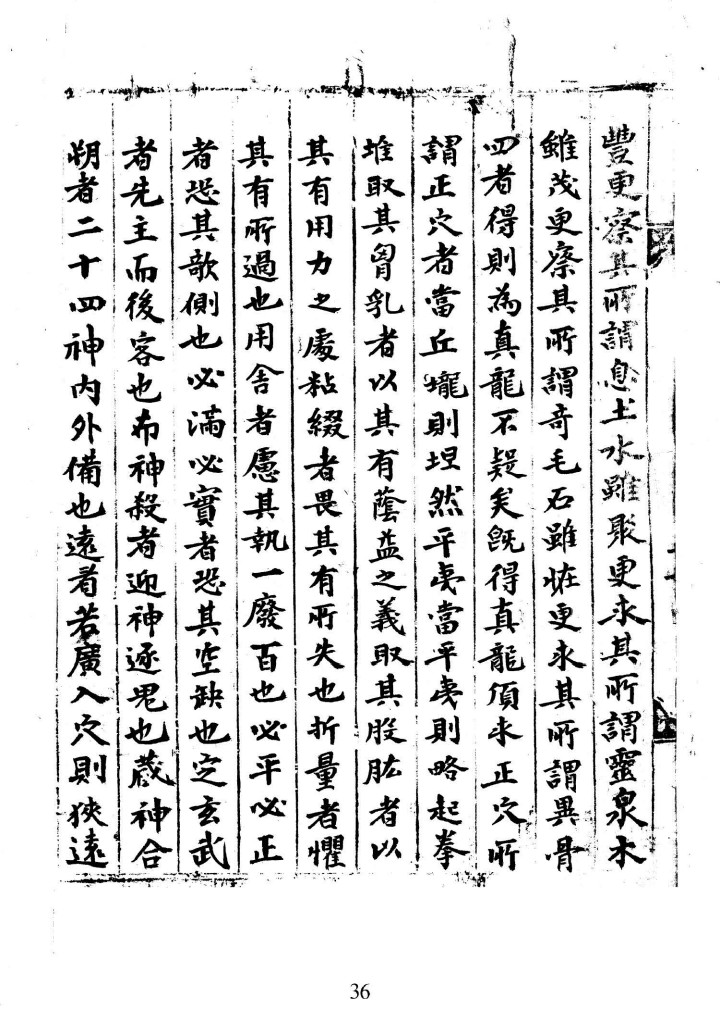 豐更察其所謂息土水雖聚更求其所謂靈泉木
雖茂更察其所謂奇毛石雖恠更求其所謂異骨
四者得則為真龍不疑矣既得真龍須求正穴所
謂正穴者當丘壠則坦然平夷當平夷則略起拳
堆取其胷乳者以其有蔭益之義取其股肱者以
其有用力之處粘綴者畏其有所失也折量者懼
其有所過也用舍者慮其執一廢百也必平必正
者恐其欹側也必滿必實者恐其空缺也定玄武
者先主而後客也布神殺者迎神逐鬼也蔵神合
朔者二十四神內外備也遠看若廣入穴則狹遠
36